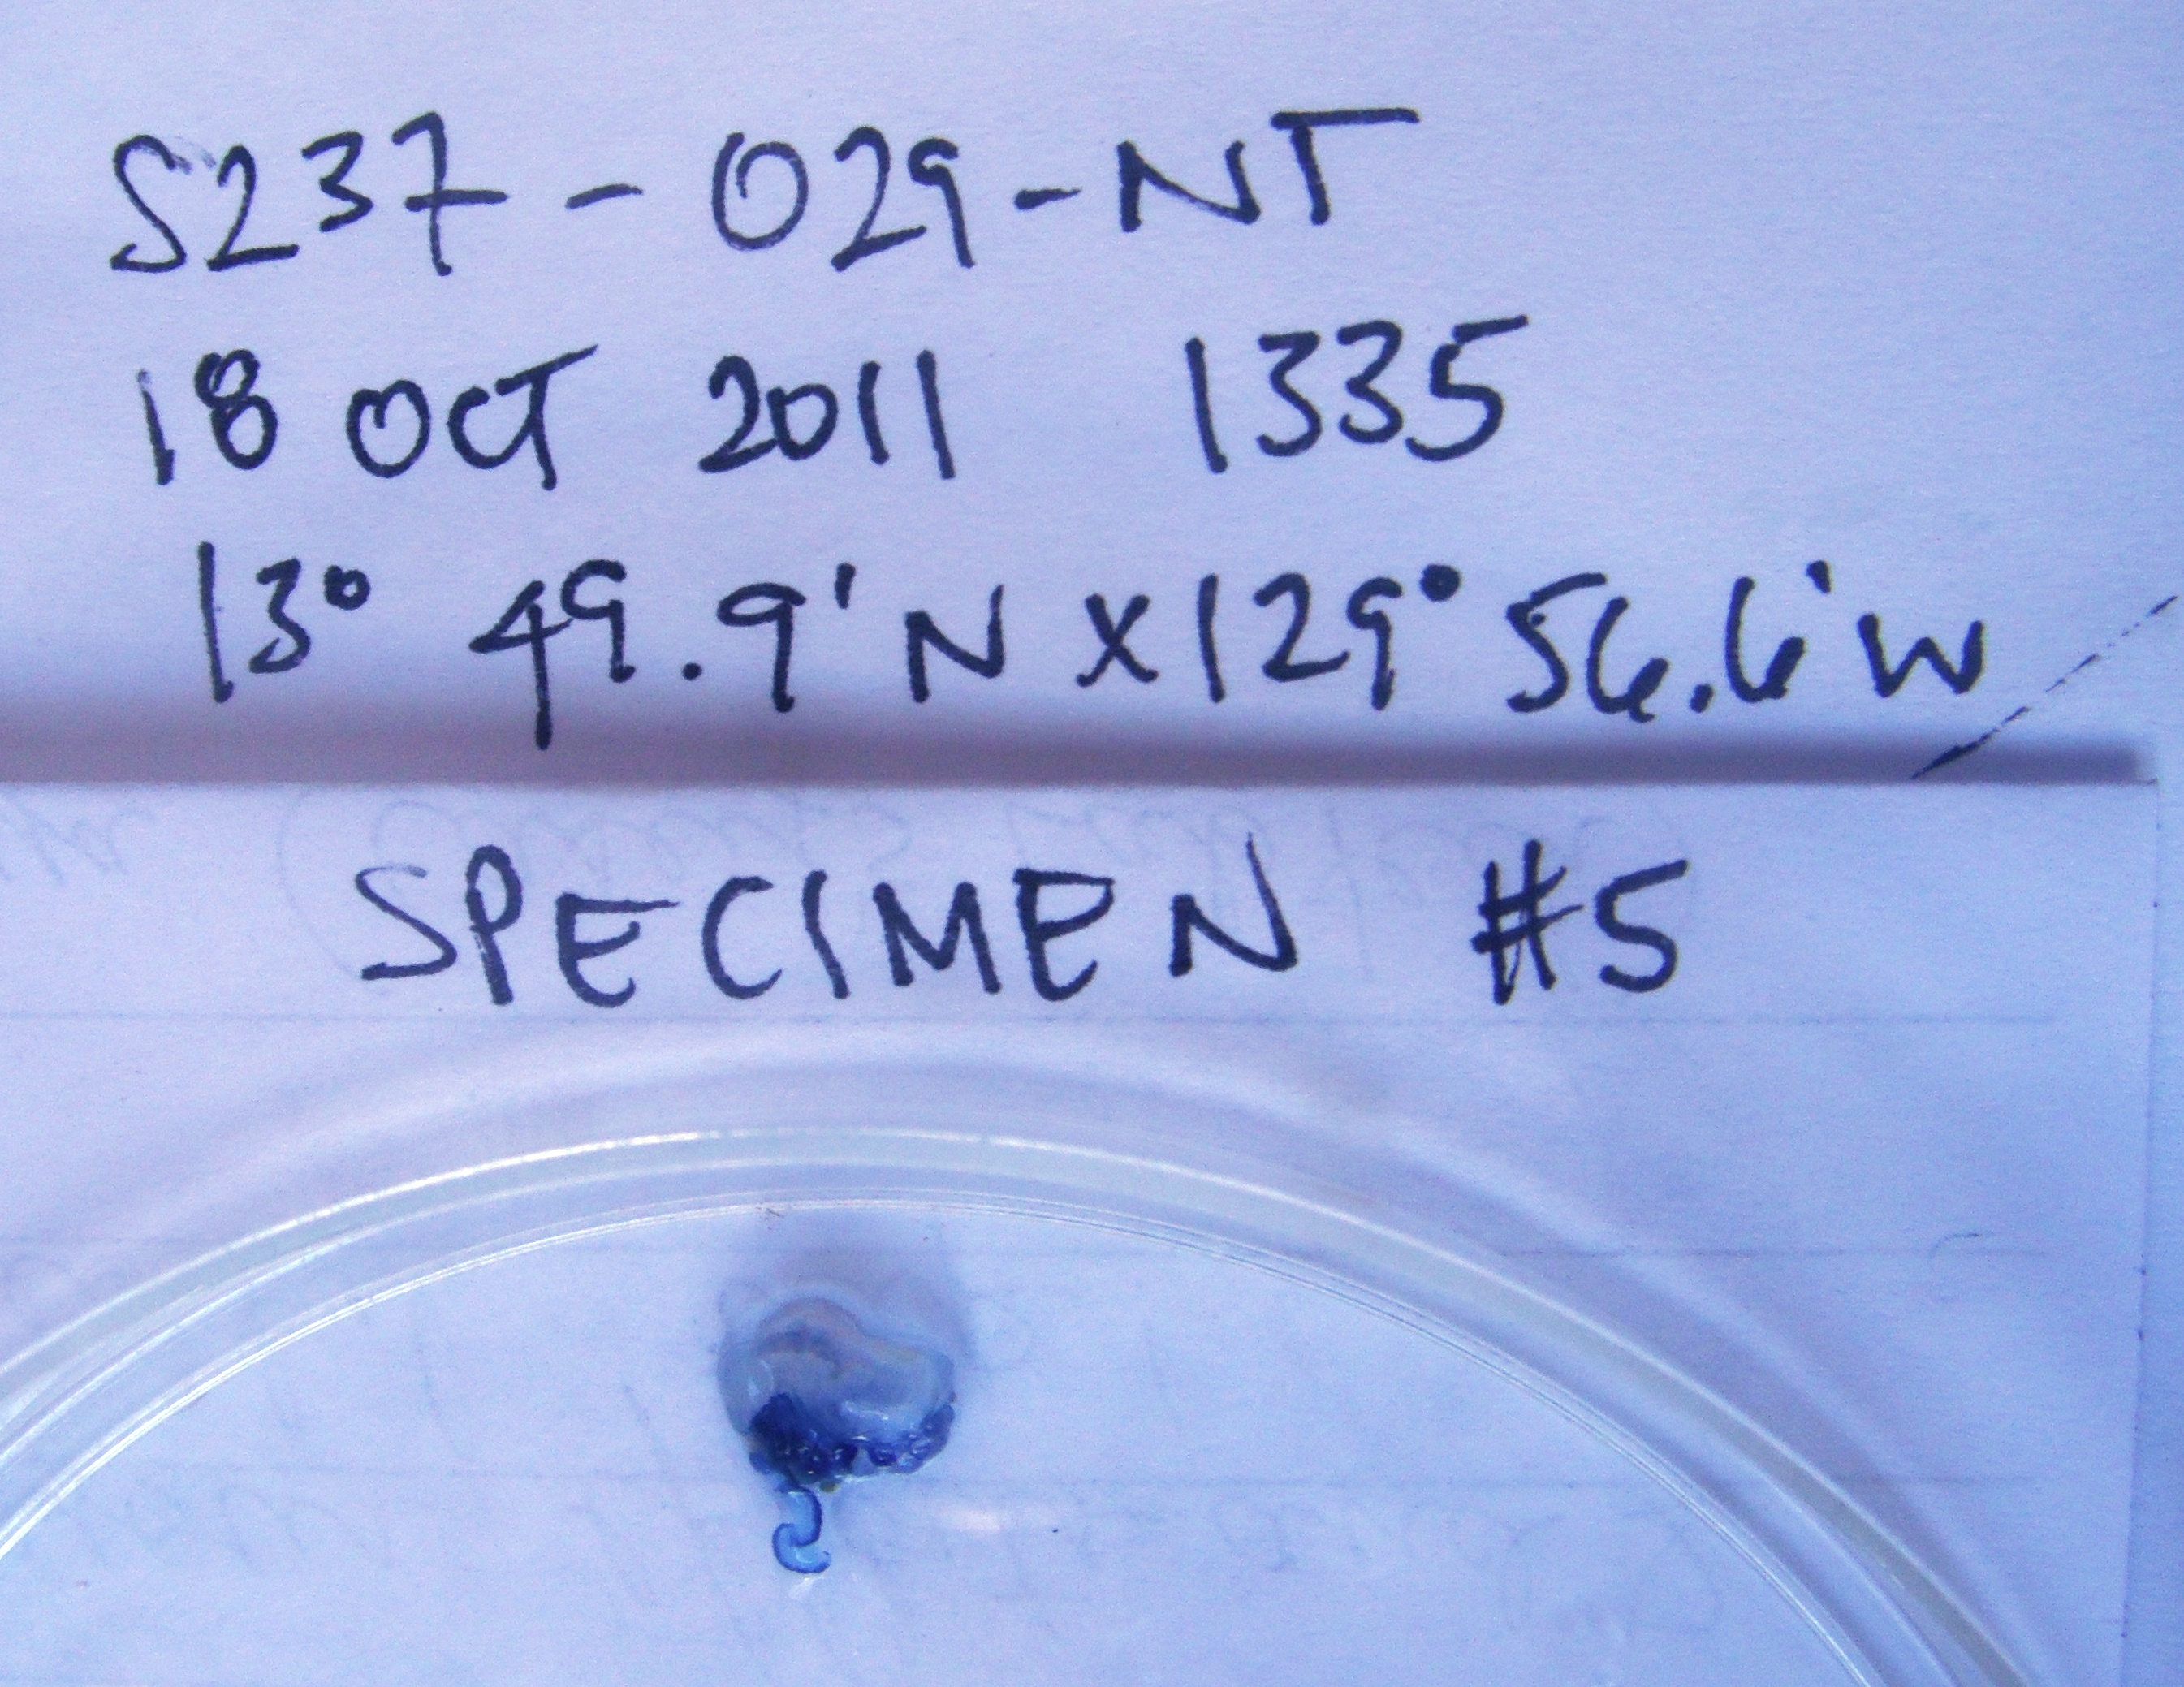 S237 - 029-NT
18 OCT 2011 1335
13° 49.9'N X 129° 56.6'W
SPECIMEN #5